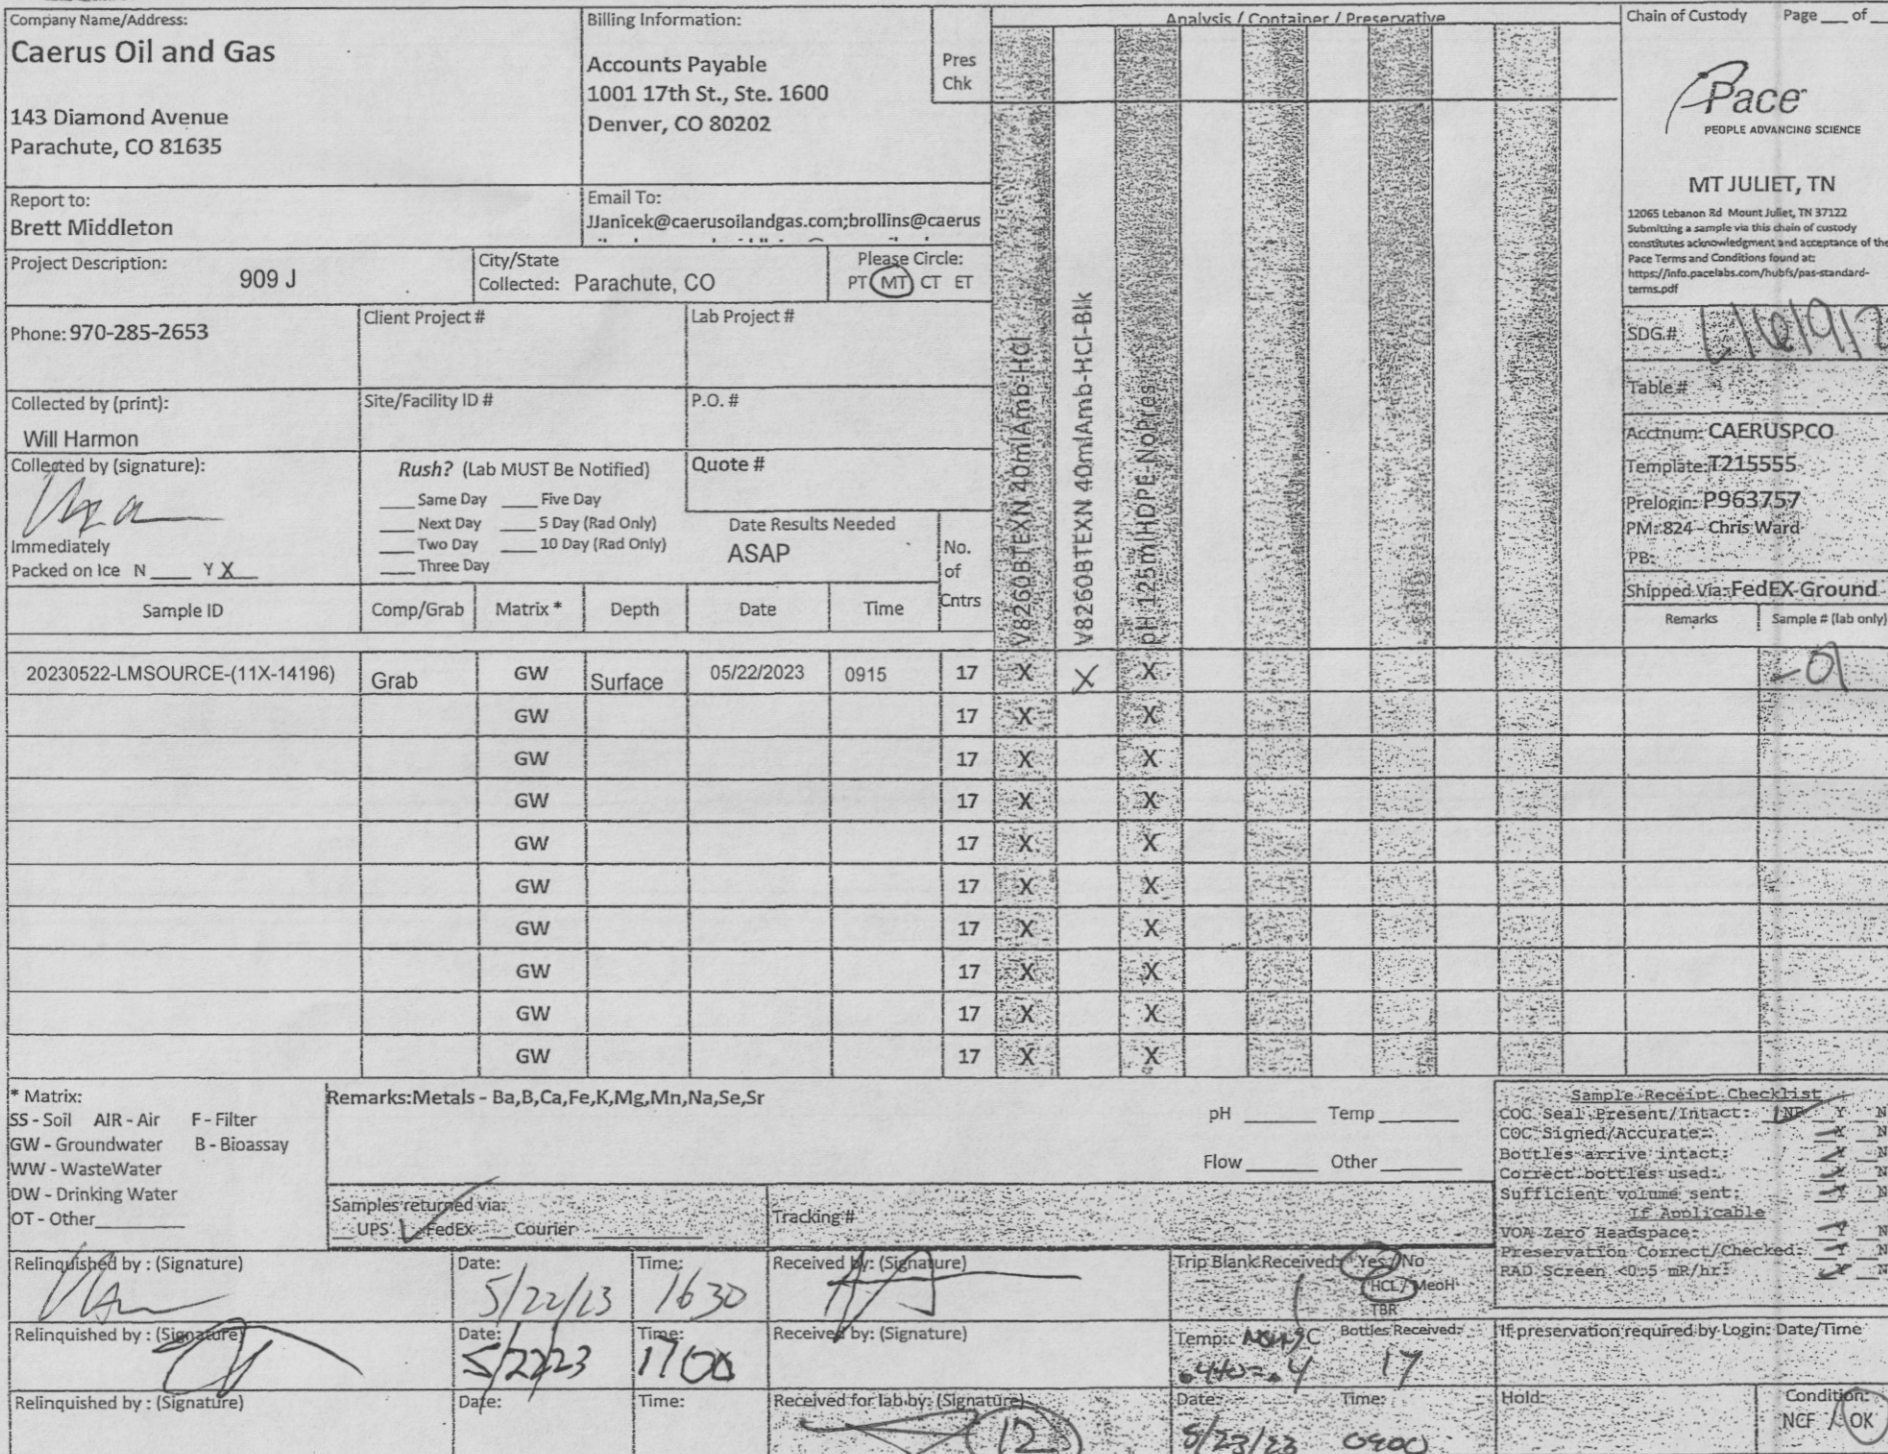 Company Name/Address:
Caerus Oil and Gas
143 Diamond Avenue
Parachute, CO 81635
Billing Information:
Accounts Payable
1001 17th St., Ste. 1600
Denver, CO 80202
Pres
Chk
Analysis / Container / Preservative
Chain of Custody Page ___ of
Pace
PEOPLE ADVANCING SCIENCE
MT JULIET, TN
12065 Lebanon Rd Mount Juliet, TN 37122
Submitting a sample via this chain of custody
constitutes acknowledgment and acceptance of the
Pace Terms and Conditions found at:
https://info.pacelabs.com/hubfs/pas-standard-
terms.pdf
Report to:
Brett Middleton
Email To:
JJanicek@caerusoilandgas.com;brollins@caerus
Project Description:
909 J
City/State
Collected: Parachute, CO
Please Circle:
PT MT CT ET
Phone: 970-285-2653
Client Project #
Lab Project #
SDG #
Table #
Collected by (print):
Will Harmon
Site/Facility ID #
P.O. #
Acctnum: CAERUSPCO
Template: T215555
Prelogin: P963757
PM: 824 - Chris Ward
PB:
Shipped Via: FedEX Ground
Collected by (signature):
Immediately
Packed on Ice N ____ Y X
Rush? (Lab MUST Be Notified)
___ Same Day ___ Five Day
___ Next Day ___ 5 Day (Rad Only)
___ Two Day ___ 10 Day (Rad Only)
___ Three Day
Quote #
Date Results Needed
ASAP
No.
of
Cntrs
V8260BTEXN 40mlAmb-HCl
V8260BTEXN 40mlAmb-HCl-Blk
pH 125mlHDPE-NoPres
Sample ID Comp/Grab Matrix * Depth Date Time Remarks Sample # (lab only)
20230522-LMSOURCE-(11X-14196) Grab GW Surface 05/22/2023 0915 17 X X X -01
GW 17 X X
GW 17 X X
GW 17 X X
GW 17 X X
GW 17 X X
GW 17 X X
GW 17 X X
GW 17 X X
GW 17 X X
* Matrix:
SS - Soil AIR - Air F - Filter
GW - Groundwater B - Bioassay
WW - WasteWater
DW - Drinking Water
OT - Other
Remarks:Metals - Ba,B,Ca,Fe,K,Mg,Mn,Na,Se,Sr
pH ______ Temp ______
Flow ______ Other ______
Samples returned via:
UPS FedEx Courier
Tracking #
Sample Receipt Checklist
COC Seal Present/Intact: NP Y N
COC Signed/Accurate: Y N
Bottles arrive intact: Y N
Correct bottles used: Y N
Sufficient volume sent: Y N
If Applicable
VOA Zero Headspace: Y N
Preservation Correct/Checked: Y N
RAD Screen <0.5 mR/hr: Y N
Relinquished by : (Signature)
Date:
5/22/23
Time:
1630
Received by: (Signature)
Trip Blank Received: Yes / No
HCL / MeoH
TBR
Relinquished by : (Signature)
Date:
5/22/23
Time:
1700
Received by: (Signature)
Temp: °C Bottles Received:
17
If preservation required by Login: Date/Time
Relinquished by : (Signature)
Date:
Time:
Received for lab by: (Signature)
12
Date:
5/23/23
Time:
0900
Hold:
Condition:
NCF / OK